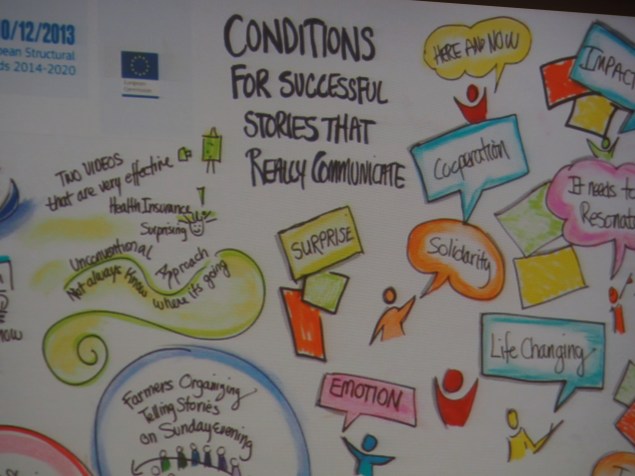 0/12/2013
pean Structural
ds 2014-2020
European
Commission
CONDITIONS
FOR SUCCESSFUL
STORIES THAT
REALLY COMMUNICATE
HERE AND NOW
IMPACT
Cooperation
It needs to
Resonate
TWO VIDEOS
that are very effective
Health Insurance
Surprising
Unconventional
Approach
Not always know where it's going
SURPRISE
Solidarity
Life Changing
EMOTION
Farmers Organizing
Telling Stories
on Sunday Evening